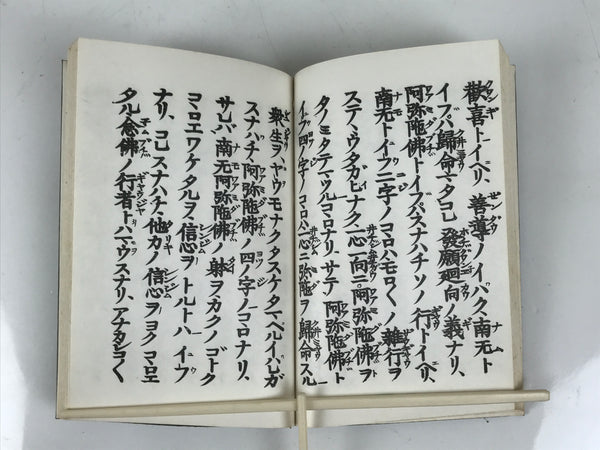 歡喜トイヘリ、善導ノイハク、南无ト
イフハ歸命、マタコレ發願廻向ノ義ナリ、
阿弥陀佛トイフハスナハチソノ行トイヘリ、
南无トイフ二字ノコヽロハモロ〱ノ雜行ヲ
ステヽウタガヒナク一心一向ニ阿弥陀佛ヲ
タノミタテマツルコヽロナリ、サテ阿弥陀佛ト
イフ四ノ字ノコヽロハ一心ニ弥陀ヲ歸命スル
衆生ヲヤウモナクタスケタマヘルイハレガ
スナハチ阿弥陀佛ノ四ノ字ノコヽロナリ、
サレバ南无阿弥陀佛ノ躰ヲカクノゴトク
コヽロエワケタルヲ信心ヲトルトハイフ
ナリ、コレスナハチ他力ノ信心ヲヨクコヽロエ
タル念佛ノ行者トハマウスナリ、アナカシコ〱